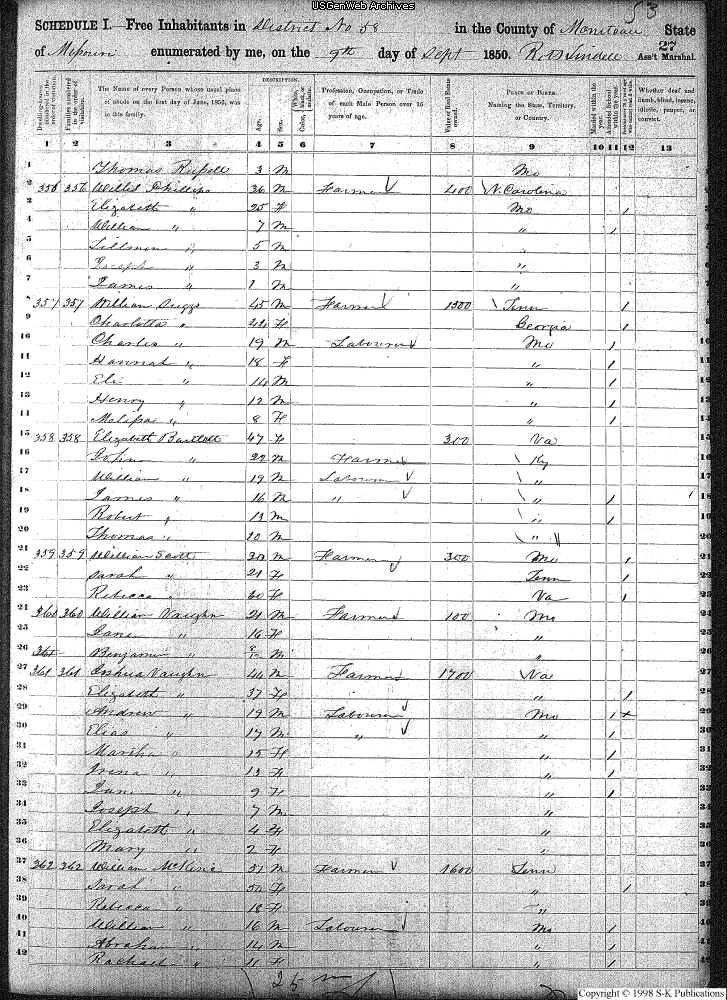 USGenWeb Archives
53
SCHEDULE I.—Free Inhabitants in District No 58 in the County of Moniteau State
27
of Missouri enumerated by me, on the 9th day of Sept 1850. Ass't Marshal.
DESCRIPTION.
Dwelling-houses numbered in the order of visitation. Families numbered in the order of visitation. The Name of every Person whose usual place of abode on the first day of June, 1850, was in this family. Age. Sex. Color, White, black, or mulatto. Profession, Occupation, or Trade of each Male Person over 15 years of age. Value of Real Estate owned. PLACE OF BIRTH. Naming the State, Territory, or Country. Married within the year. Attended School within the year. Whether deaf and dumb, blind, insane, idiotic, pauper, or convict.
1 2 3 4 5 6 7 8 9 10 11 12 13
1 Thomas 3 M Mo
2 356 356 Phillips 36 M Farmer 400 N. Carolina
3 Elizabeth " 25 F Mo /
4 William " 7 M " /
5 " 5 M "
6 Joseph " 3 M "
7 James " 1 M "
8 357 357 William Suggs 45 M Farmer 1300 Tenn /
9 Charlotta " 44 F Georgia /
10 Charles " 19 M Labourer Mo /
11 Hannah " 18 F " /
12 Eli " 14 M " /
13 Henry " 12 M " /
14 Melissa " 8 F " /
15 358 358 Elizabeth Bartlett 47 F 300 Va
16 John " 22 M Farmer Ky
17 William " 19 M Labourer "
18 James " 16 M " " /
19 Robert " 13 M " /
20 Thomas " 10 M "
21 359 359 William Scott 30 M Farmer 300 Mo /
22 Sarah " 21 F Tenn /
23 Rebecca " 60 F Va /
24 360 360 William Vaughn 21 M Farmer 100 Mo
25 Jane " 16 F "
26 361 Benjamin " M "
27 361 361 Joshua Vaughn 44 M Farmer 1700 Va
28 Elizabeth " 37 F " /
29 Andrew " 19 M Labourer Mo / +
30 Elias " 17 M " " /
31 Martha " 15 F " /
32 " 13 F " /
33 Jane " 9 F " /
34 Joseph " 7 M "
35 Elizabeth " 4 F "
36 Mary " 2 F "
37 362 362 William McKesie 51 M Farmer 1600 Tenn
38 Sarah " 50 F " /
39 Rebecca " 18 F "
40 William " 16 M Labourer Mo /
41 Abraham " 14 M " /
42 Rachael " 11 F " /
25 m
Copyright © 1998 S-K Publications